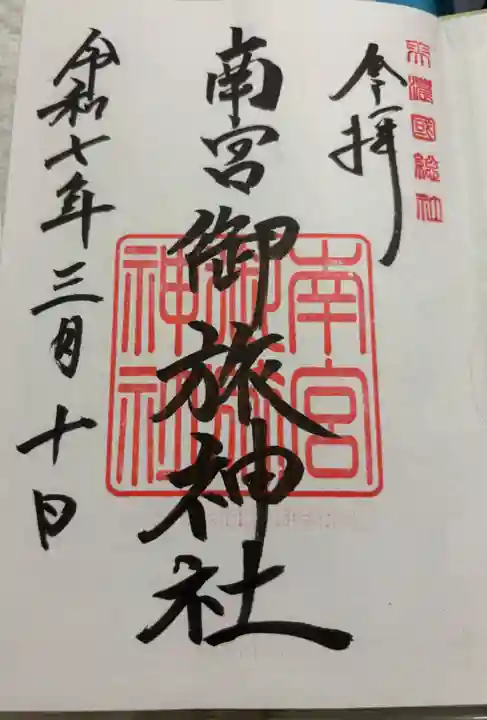 美濃國総社
奉拝
南宮御旅神社
南宮
御旅
神社
令和七年三月十日